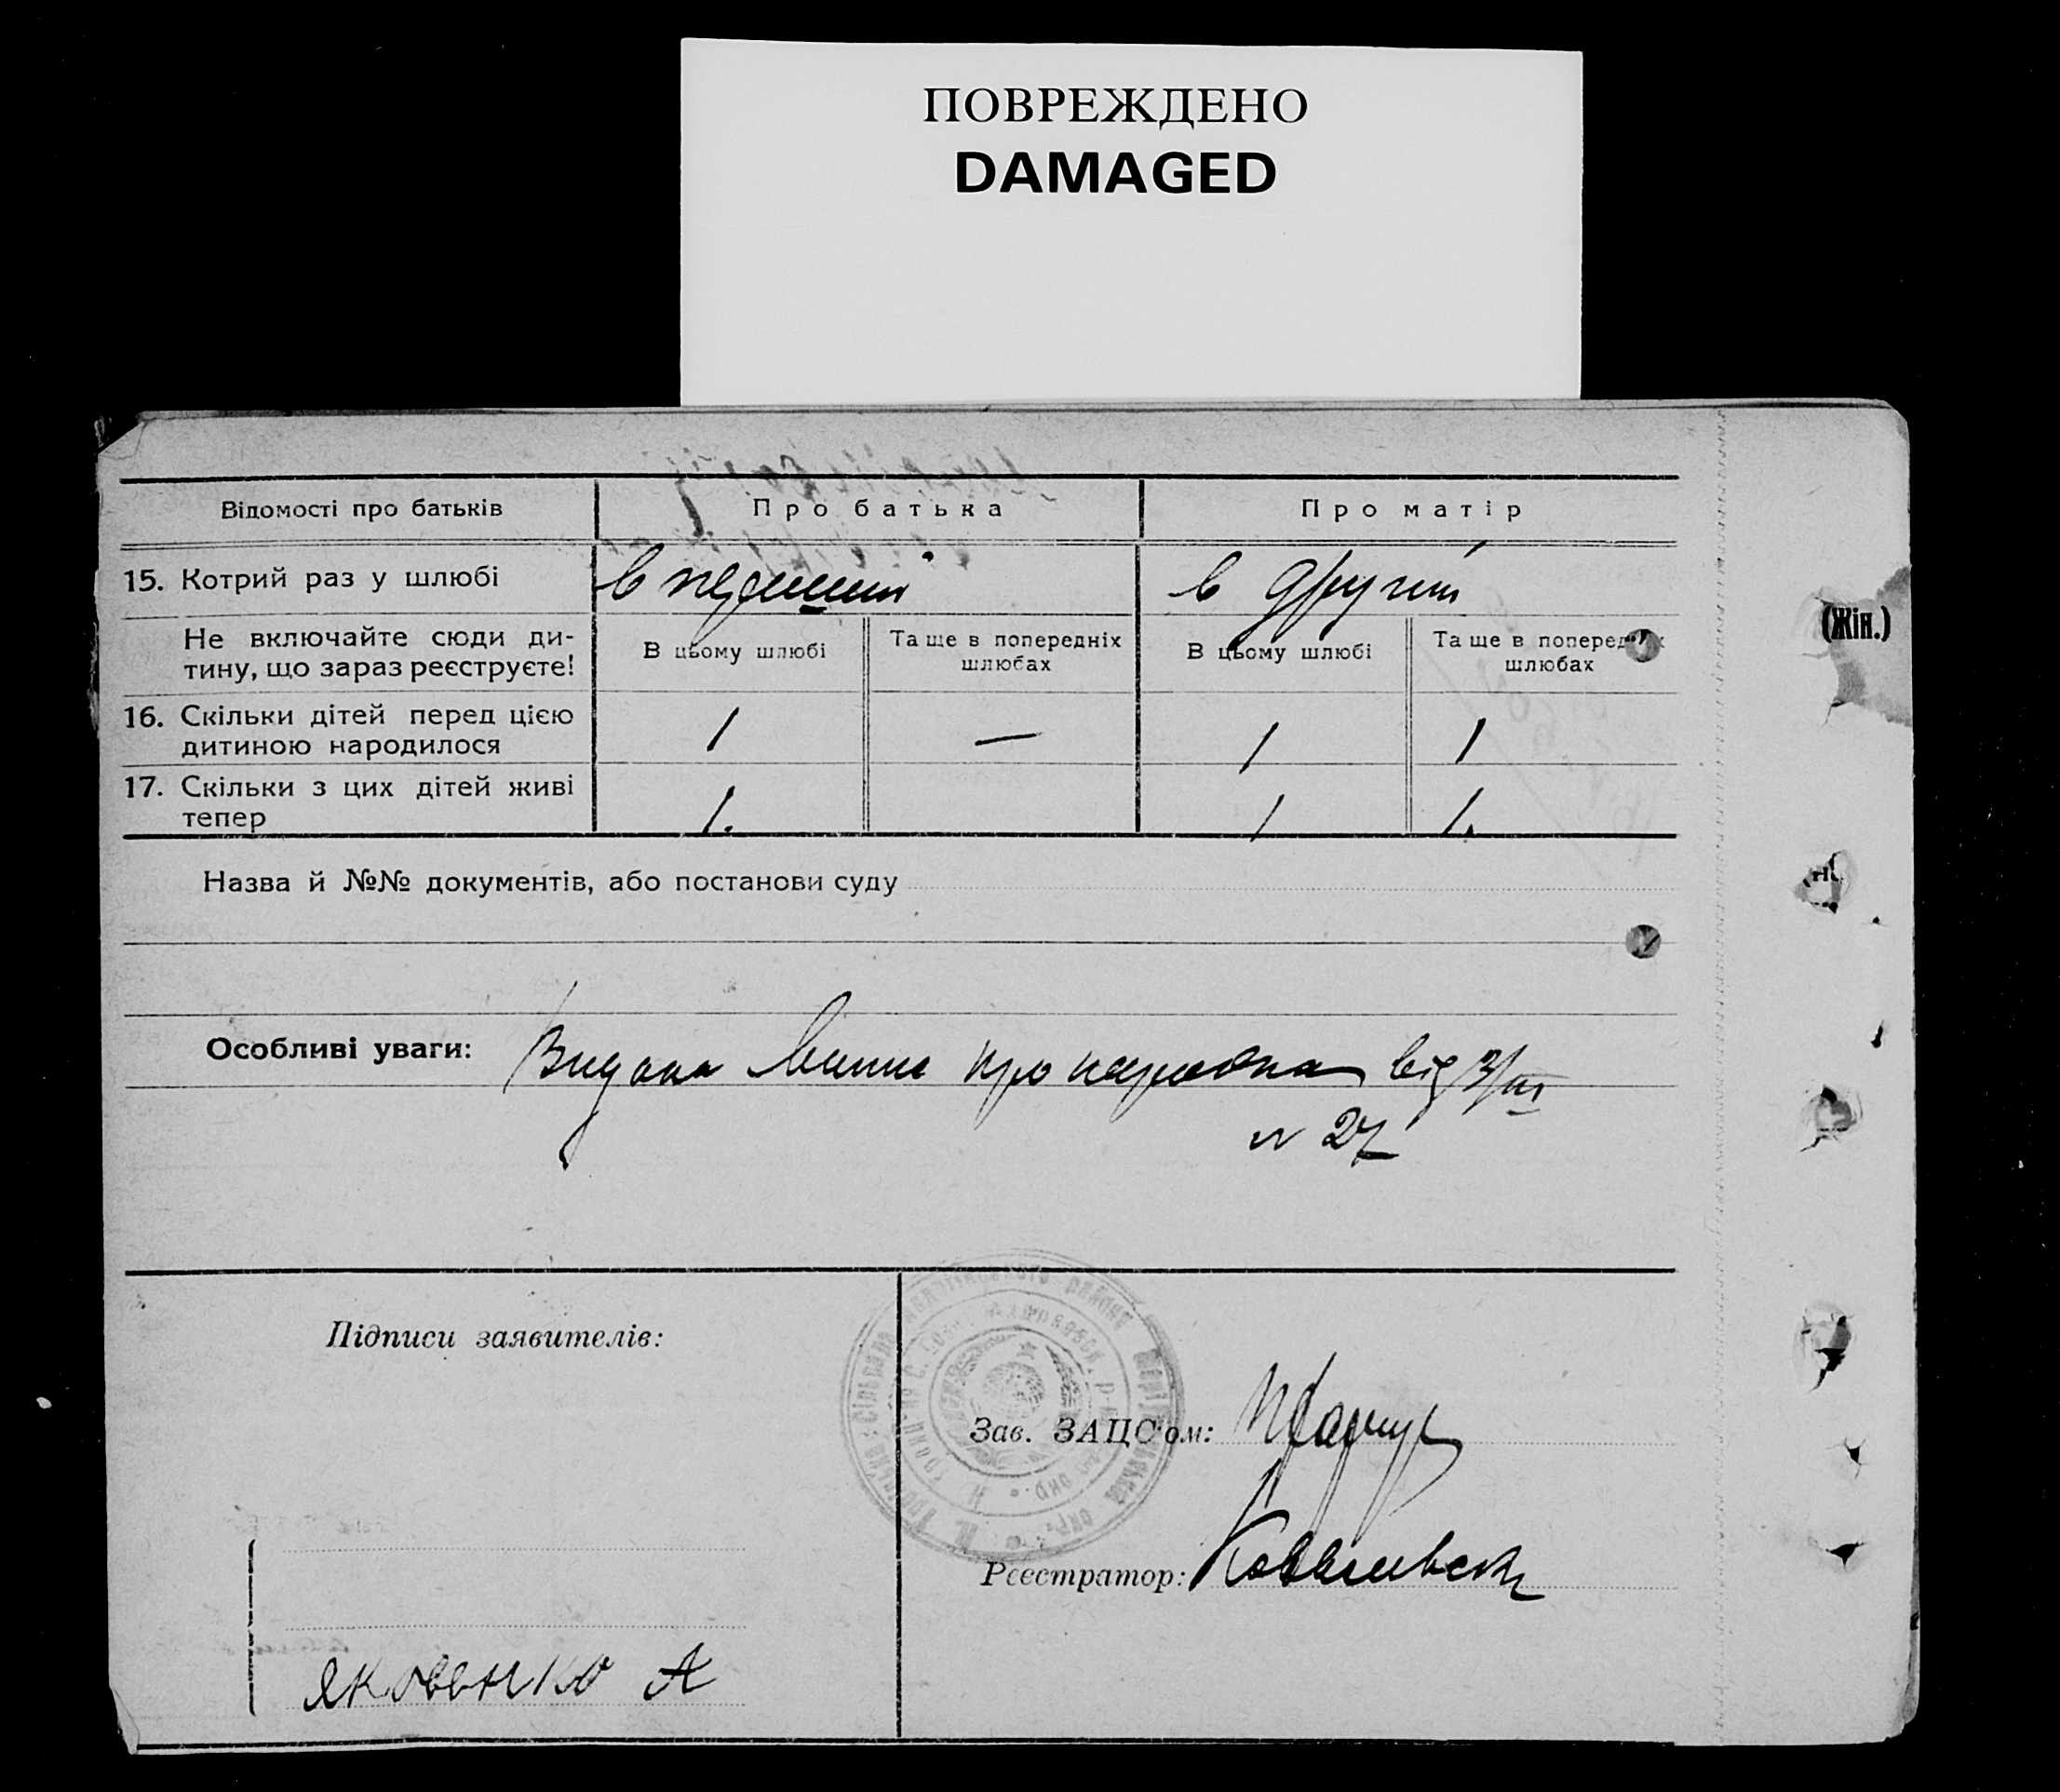 ПОВРЕЖДЕНО
DAMAGED
Відомості про батьків
Про батька
Про матір
15. Котрий раз у шлюбі
в перший
в другий
Не включайте сюди ди-
тину, що зараз реєструєте!
В цьому шлюбі
Та ще в попередніх
шлюбах
В цьому шлюбі
Та ще в поперед х
шлюбах
(Жін.)
16. Скільки дітей перед цією
дитиною народилося
1
—
1
1
17. Скільки з цих дітей живі
тепер
1.
1
1.
Назва й №№ документів, або постанови суду
Особливі уваги:
Видана про від 3/III
№ 27
Підписи заявителів:
Зав. ЗАЦС'ом:
Реєстратор:
Яковенко А